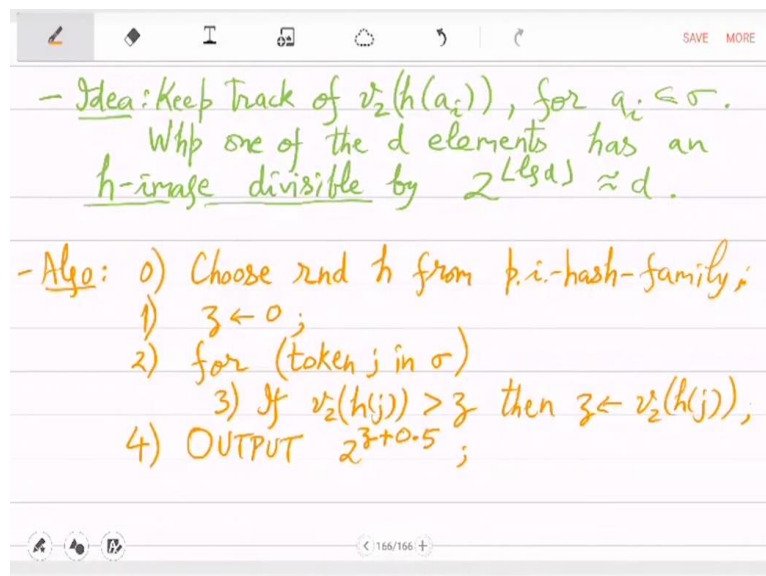 SAVE MORE
- Idea: Keep Track of v₂(h(aᵢ)), for aᵢ ∈ σ.
Whp one of the d elements has an
h-image divisible by 2^⌊lg d⌋ ≈ d.
- Algo: 0) Choose rnd h from p.i.-hash-family;
1) z ← 0;
2) for (token j in σ)
3) If v₂(h(j)) > z then z ← v₂(h(j));
4) OUTPUT 2^(z+0.5);
166/166